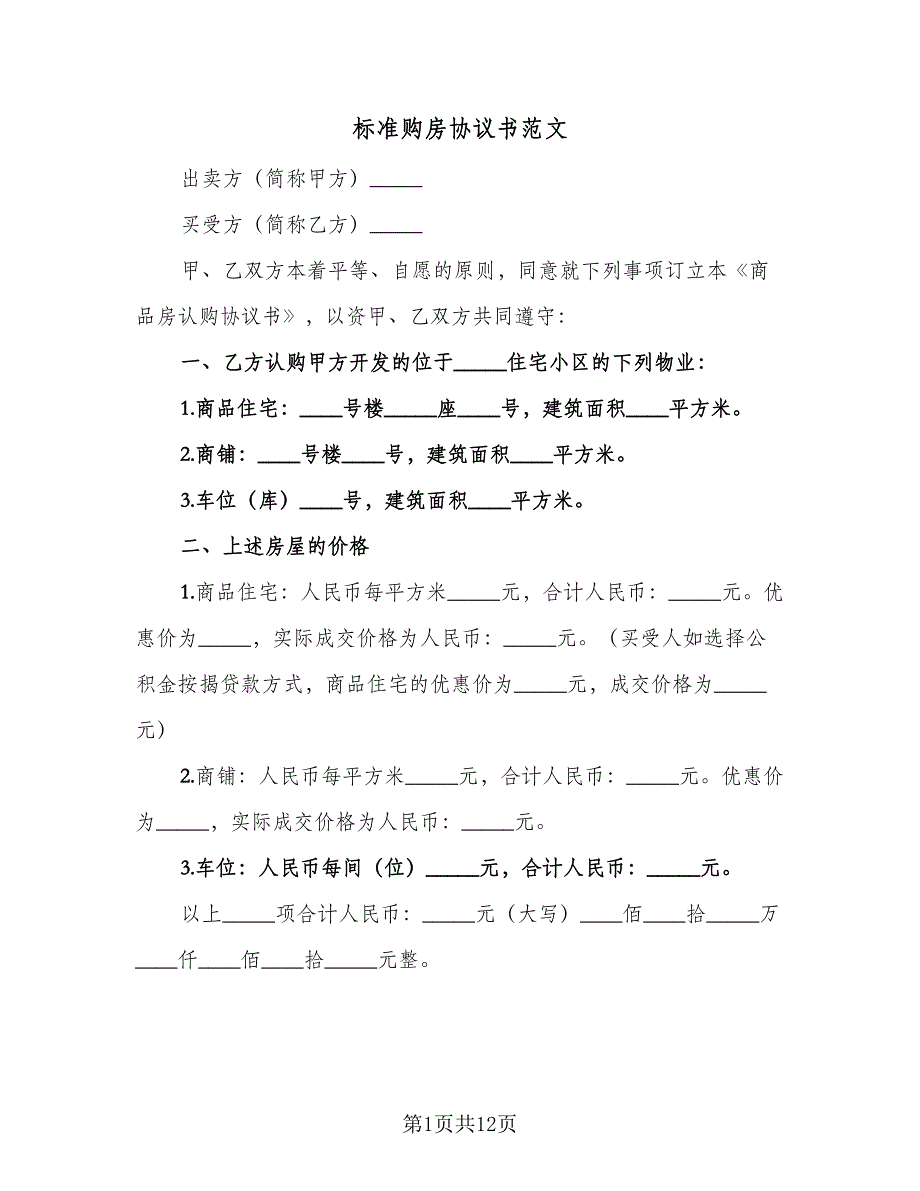 标准购房协议书范文
出卖方（简称甲方）_____
买受方（简称乙方）_____
甲、乙双方本着平等、自愿的原则，同意就下列事项订立本《商
品房认购协议书》，以资甲、乙双方共同遵守：
一、乙方认购甲方开发的位于_____住宅小区的下列物业：
1.商品住宅：____号楼_____座____号，建筑面积____平方米。
2.商铺：____号楼____号，建筑面积____平方米。
3.车位（库）____号，建筑面积____平方米。
二、上述房屋的价格
1.商品住宅：人民币每平方米_____元，合计人民币：_____元。优
惠价为_____，实际成交价格为人民币：_____元。（买受人如选择公
积金按揭贷款方式，商品住宅的优惠价为_____元，成交价格为_____
元）
2.商铺：人民币每平方米_____元，合计人民币：_____元。优惠价
为_____，实际成交价格为人民币：_____元。
3.车位：人民币每间（位）_____元，合计人民币：_____元。
以上_____项合计人民币：_____元（大写）____佰____拾_____万
____仟____佰____拾_____元整。
第1页共12页